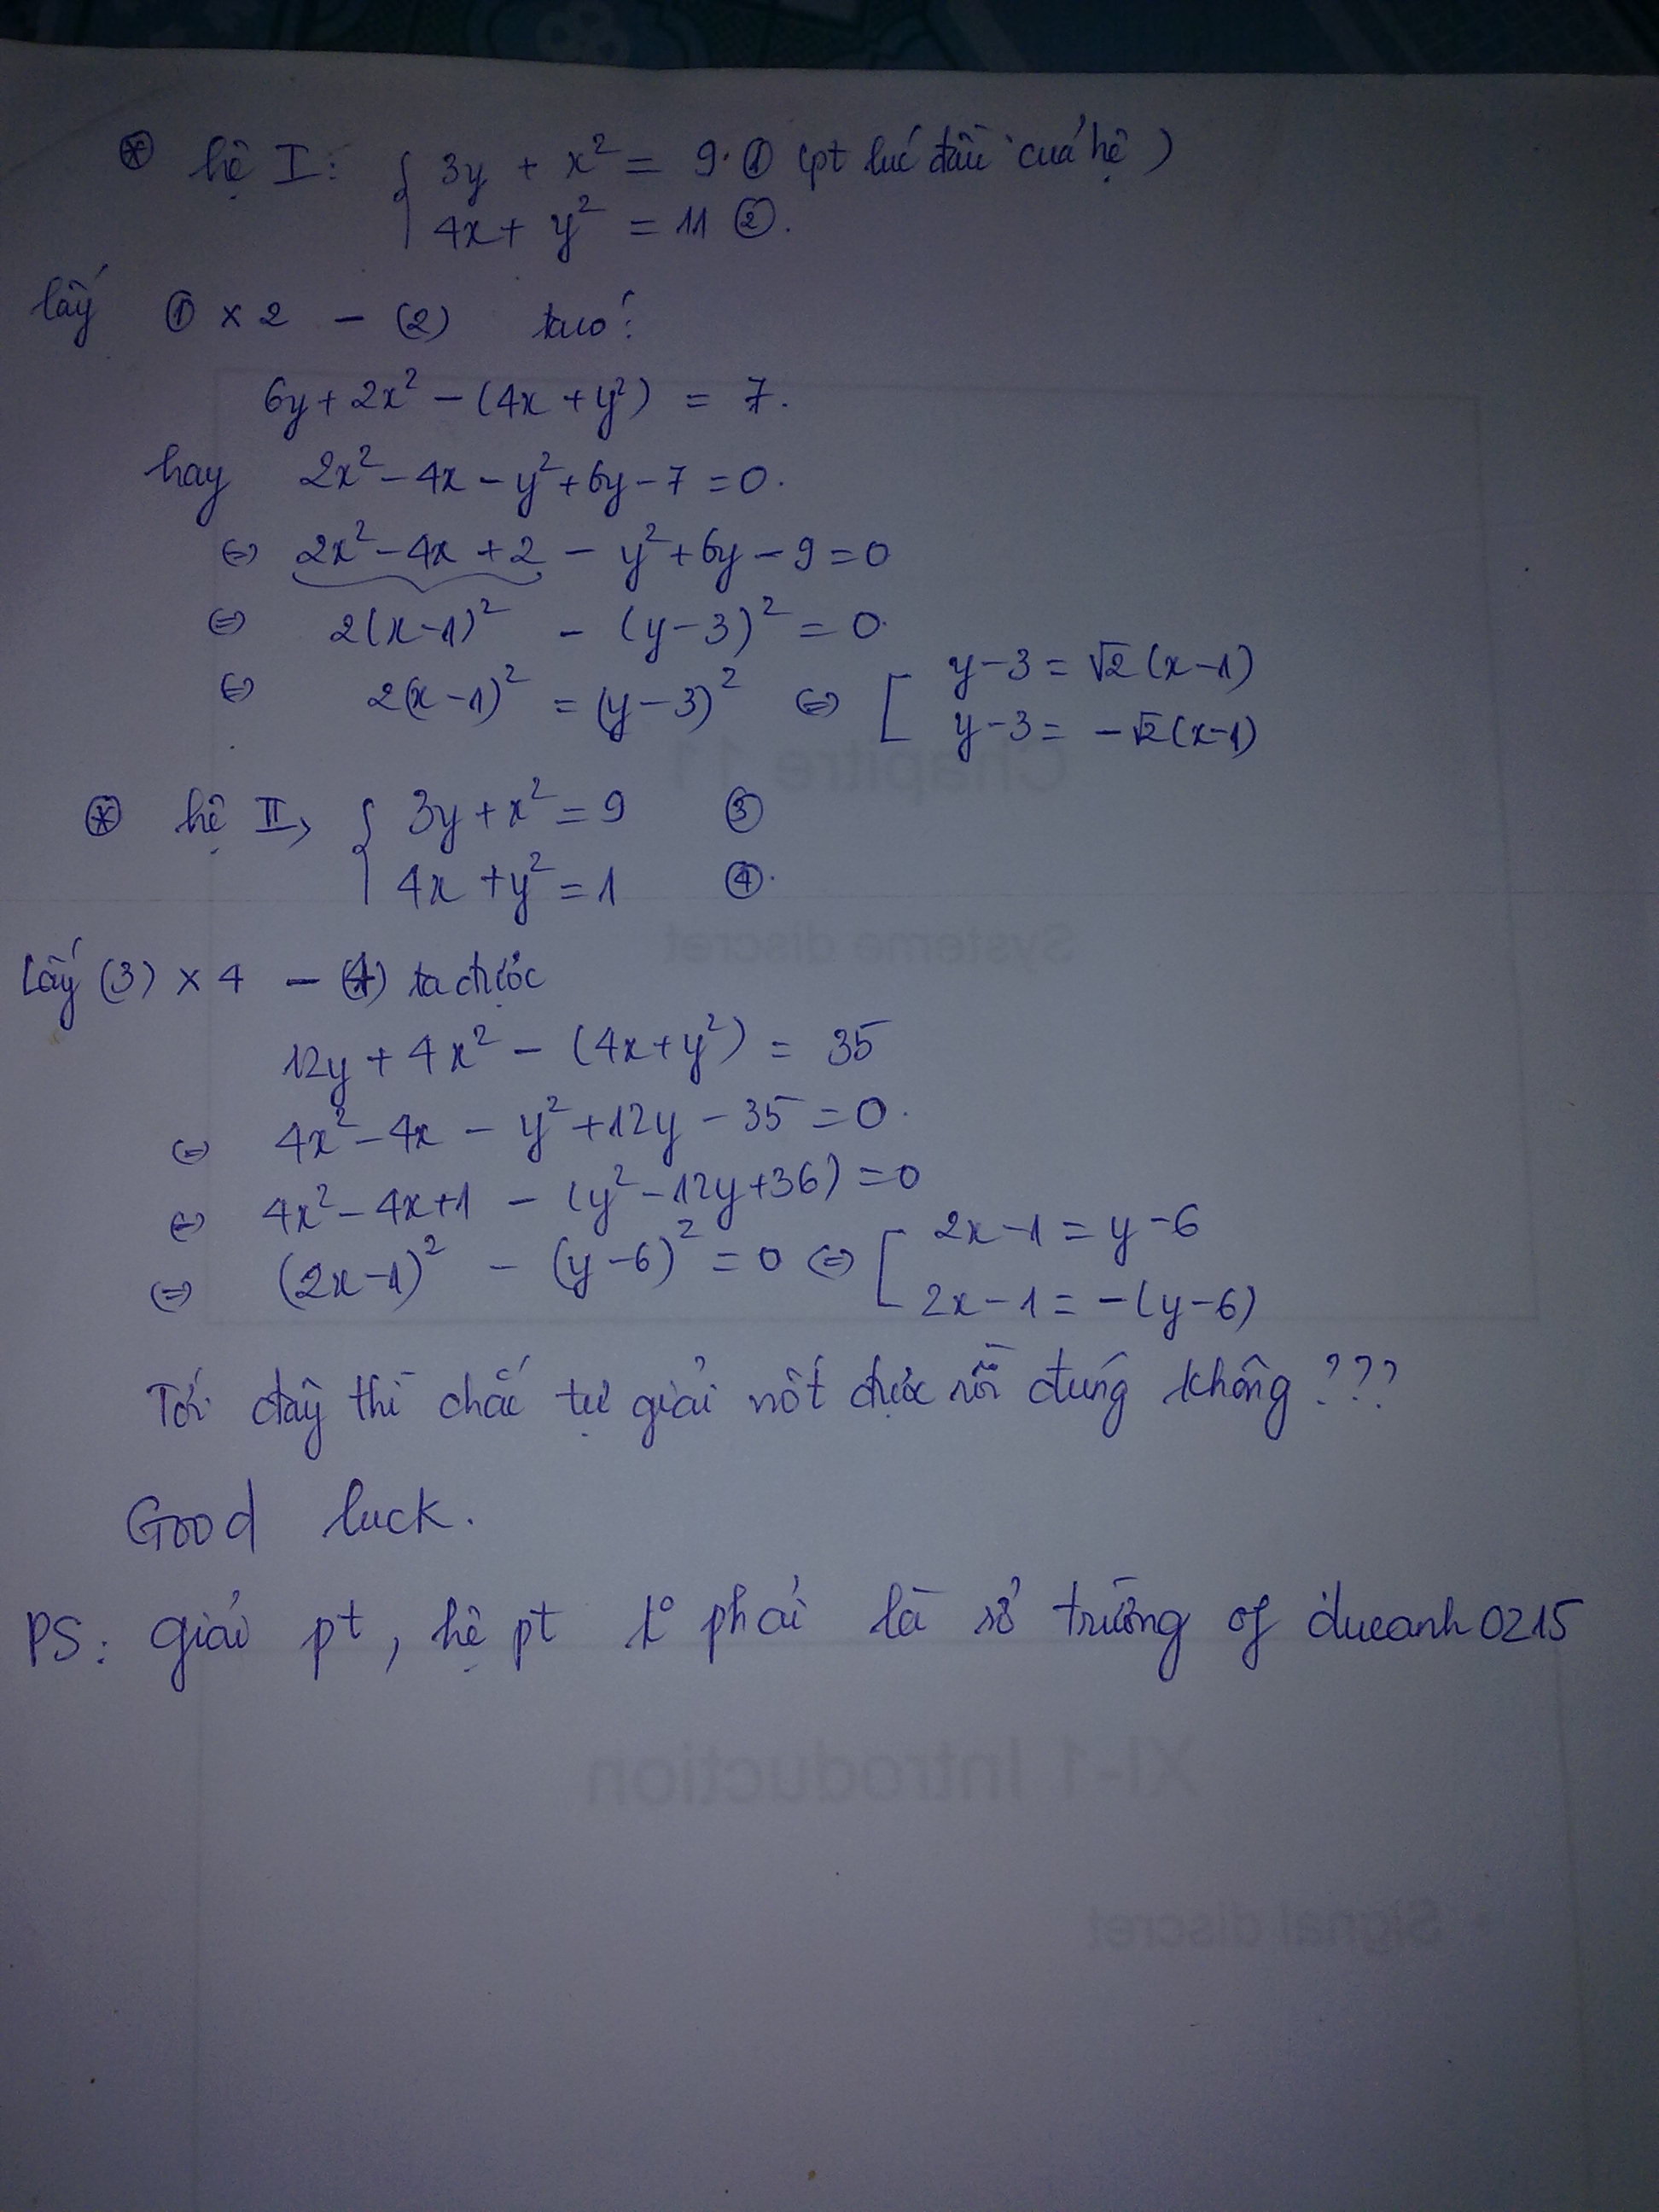 ⊛ hệ I: { 3y + x² = 9. ① (pt lúc đầu của hệ)
4x + y² = 11 ②.
lấy ① × 2 - (2) ta có:
6y + 2x² - (4x + y²) = 7.
hay 2x² - 4x - y² + 6y - 7 = 0.
⇔ 2x² - 4x + 2 - y² + 6y - 9 = 0
⇔ 2(x-1)² - (y-3)² = 0.
⇔ 2(x-1)² = (y-3)² ⇔ [ y-3 = √2(x-1)
y-3 = -√2(x-1)
Chapitre 11
⊛ hệ II, { 3y + x² = 9 ③
4x + y² = 1 ④.
Systeme discret
Lấy (3) × 4 - (4) ta được
12y + 4x² - (4x + y²) = 35
⇔ 4x² - 4x - y² + 12y - 35 = 0.
⇔ 4x² - 4x + 1 - (y² - 12y + 36) = 0
⇔ (2x-1)² - (y-6)² = 0 ⇔ [ 2x-1 = y-6
2x-1 = -(y-6)
Tới đây thì chắc tự giải nốt được rồi đúng không???
Good luck.
PS: giải pt, hệ pt k° phải là sở trường of ducanh0215
XI-1 Introduction
• Signal discret